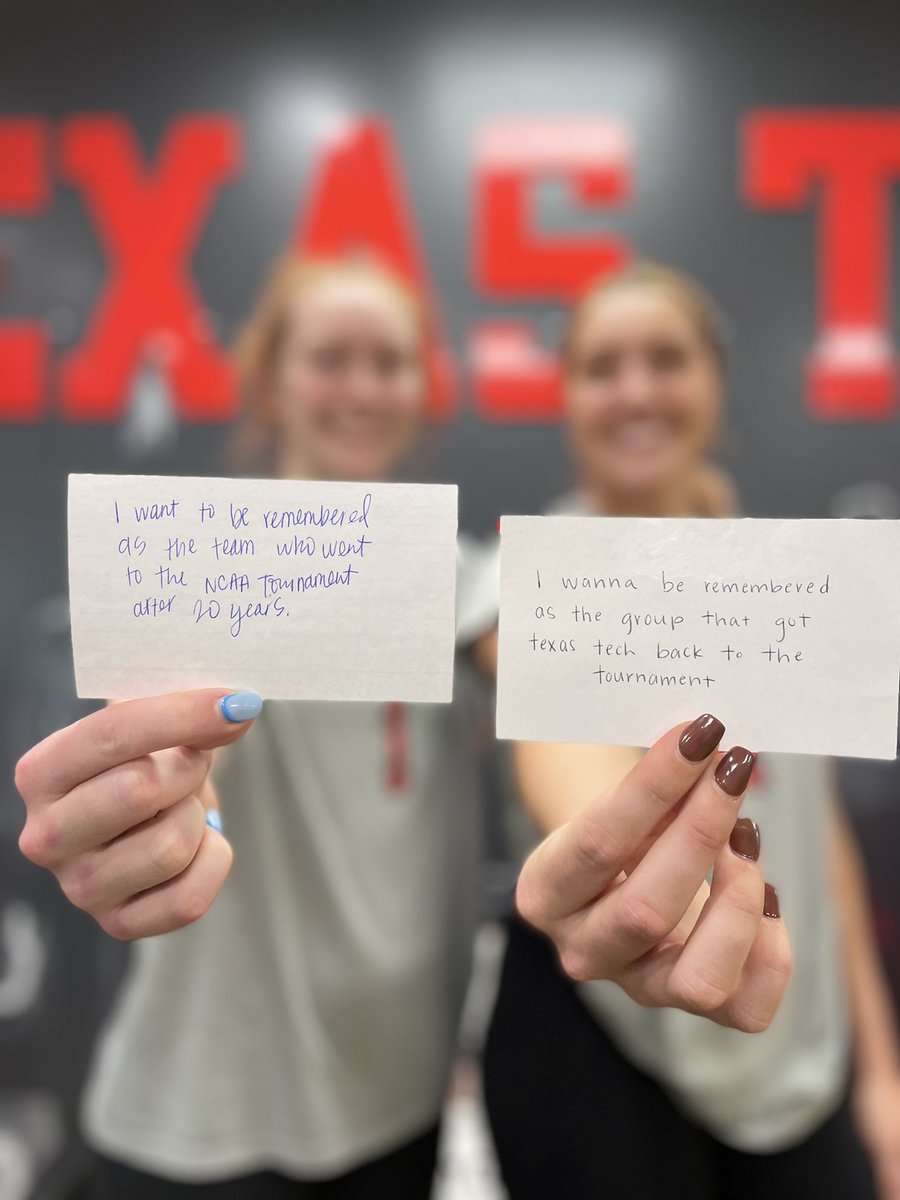 EXAS T
I want to be remembered
as the team who went
to the NCAA Tournament
after 20 years.
I wanna be remembered
as the group that got
texas tech back to the
tournament